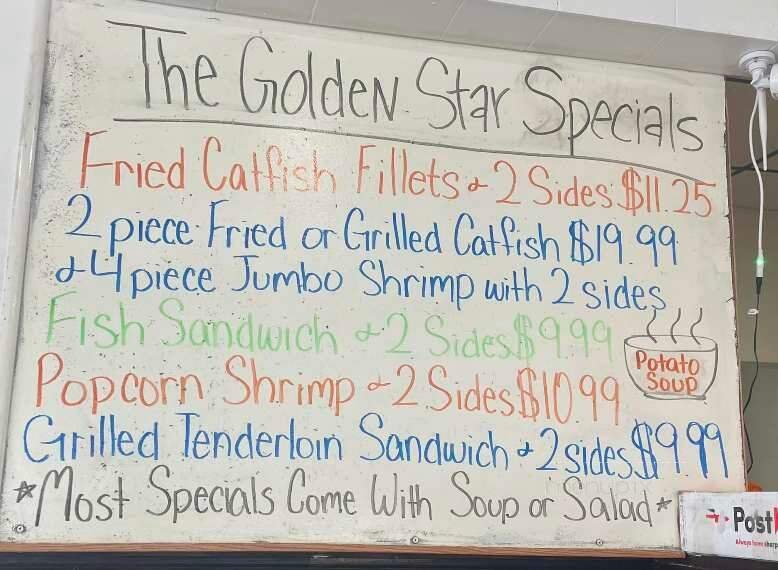 The Golden Star Specials
Fried Catfish Fillets & 2 Sides $11.25
2 piece Fried or Grilled Catfish $19.99
& 4 piece Jumbo Shrimp with 2 sides
Fish Sandwich & 2 Sides $9.99
Potato
Soup
Popcorn Shrimp & 2 Sides $10.99
Grilled Tenderloin Sandwich & 2 sides $9.99
*Most Specials Come With Soup or Salad*
Post
Always have